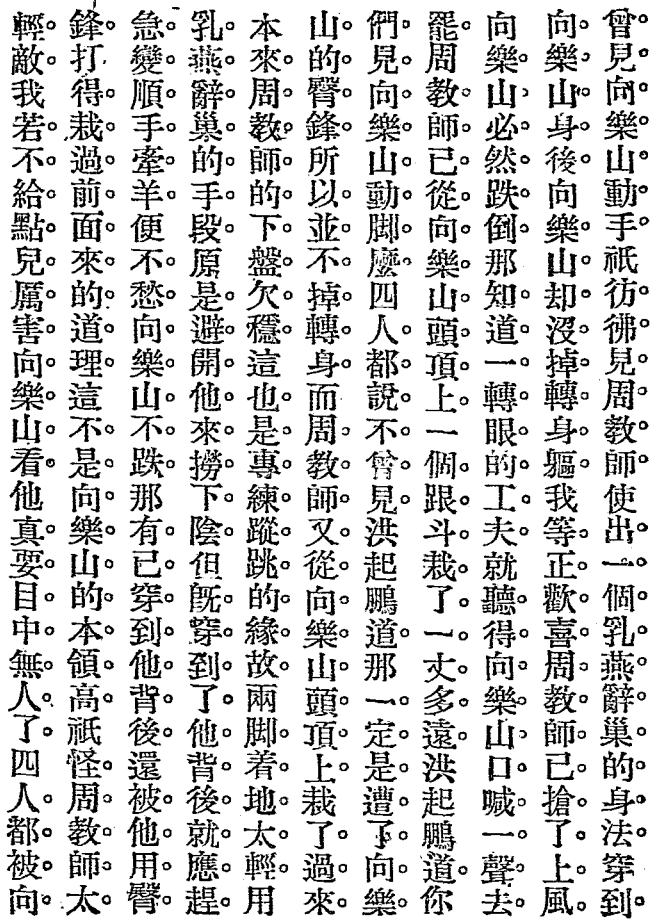 曾見向樂山動手祇彷彿見周教師使出一個乳燕辭巢的身法穿到
向樂山身後向樂山却沒掉轉身軀我等正歡喜周教師已搶了上風
向樂山必然跌倒那知道一轉眼的工夫就聽得向樂山口喊一聲去
罷周教師已從向樂山頭頂上一個跟斗栽了一丈多遠洪起鵬道你
們見向樂山動脚麽四人都說不曾見洪起鵬道那一定是遭了向樂
山的臀鋒所以並不掉轉身而周教師又從向樂山頭頂上栽了過來
本來周教師的下盤欠穩這也是專練蹤跳的緣故兩脚着地太輕用
乳燕辭巢的手段原是避開他來撈下陰但既穿到了他背後就應趕
急變順手牽羊便不愁向樂山不跌那有已穿到他背後還被他用臀
鋒打得栽過前面來的道理這不是向樂山的本領高祇怪周教師太
輕敵我若不給點兒厲害向樂山看他真要目中無人了四人都被向